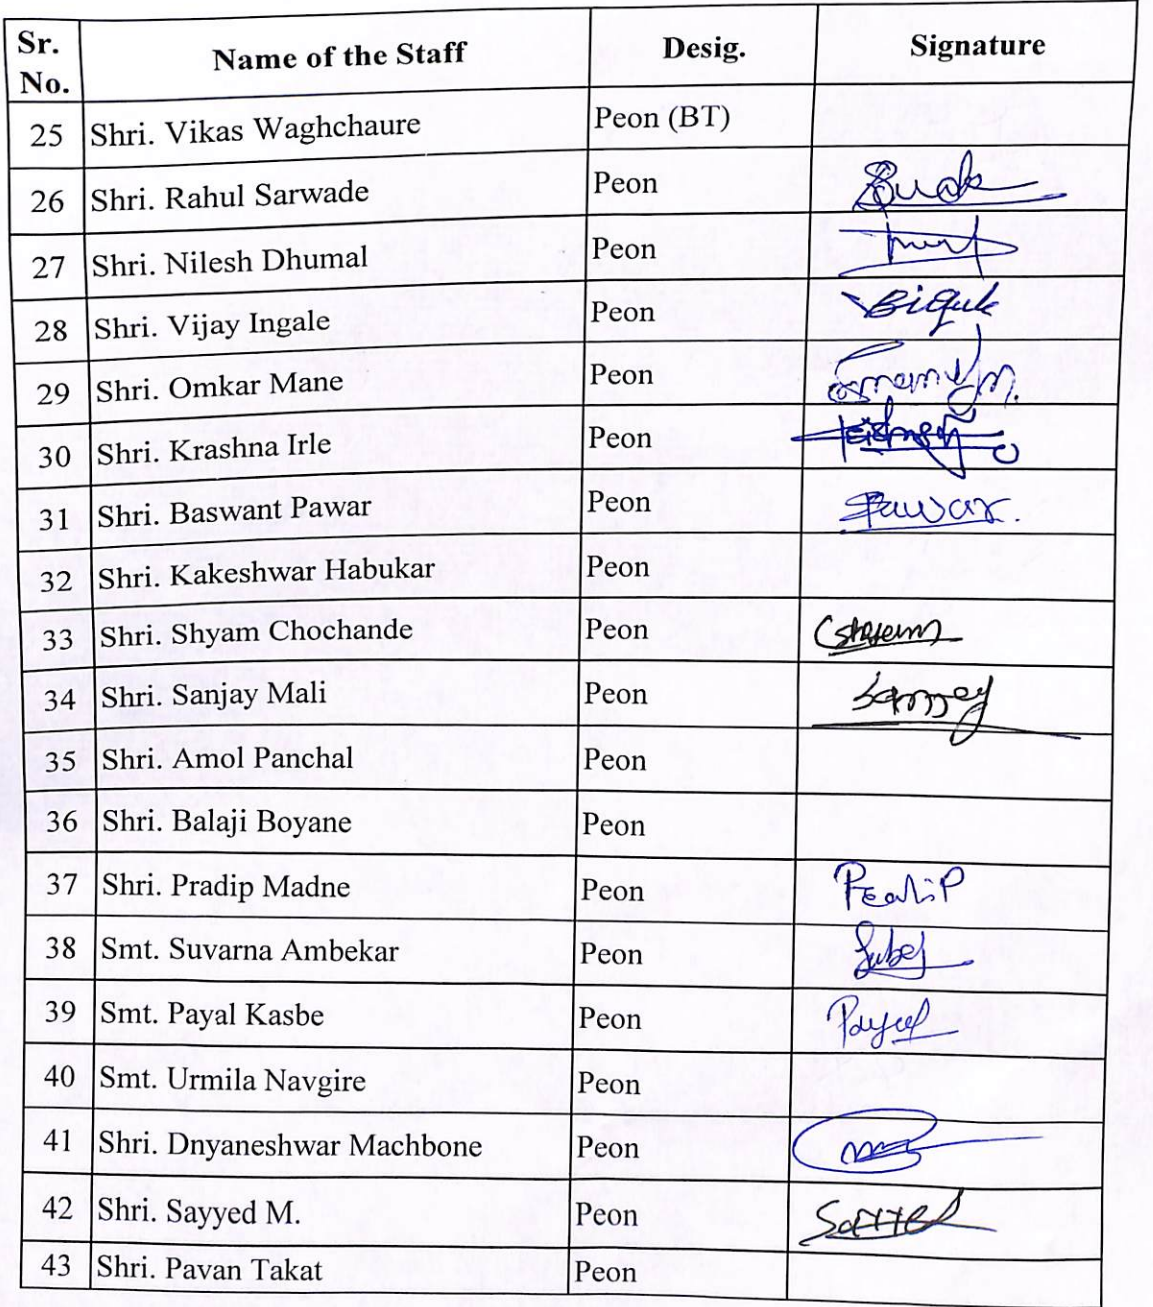 Sr. No. Name of the Staff Desig. Signature
25 Shri. Vikas Waghchaure Peon (BT)
26 Shri. Rahul Sarwade Peon
27 Shri. Nilesh Dhumal Peon
28 Shri. Vijay Ingale Peon
29 Shri. Omkar Mane Peon
30 Shri. Krashna Irle Peon
31 Shri. Baswant Pawar Peon Pawar.
32 Shri. Kakeshwar Habukar Peon
33 Shri. Shyam Chochande Peon
34 Shri. Sanjay Mali Peon
35 Shri. Amol Panchal Peon
36 Shri. Balaji Boyane Peon
37 Shri. Pradip Madne Peon
38 Smt. Suvarna Ambekar Peon
39 Smt. Payal Kasbe Peon Payal
40 Smt. Urmila Navgire Peon
41 Shri. Dnyaneshwar Machbone Peon
42 Shri. Sayyed M. Peon
43 Shri. Pavan Takat Peon